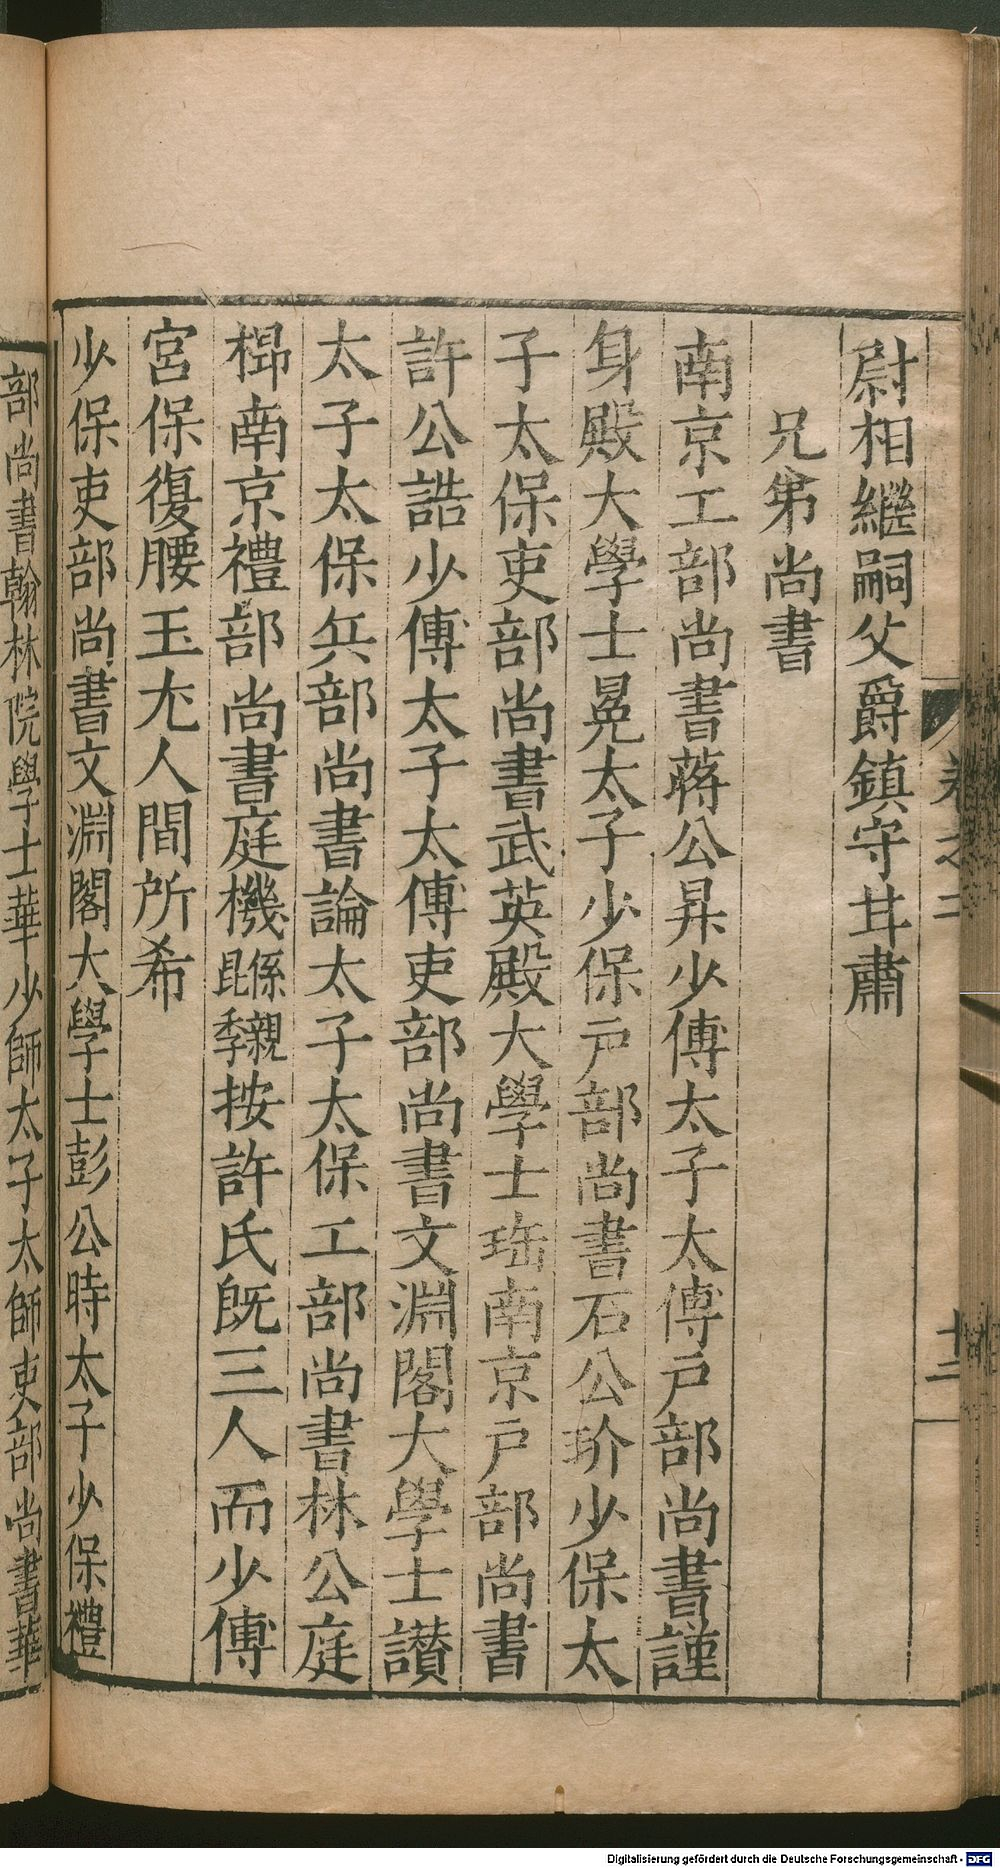 尉相繼嗣父爵鎮守甘肅
兄弟尚書
南京工部尚書蔣公昇少傅太子太傅戶部尚書謹
身殿大學士冕太子少保戶部尚書石公玠少保太
子太保吏部尚書武英殿大學士珤南京戶部尚書
許公誥少傅太子太傅吏部尚書文淵閣大學士讃
太子太保兵部尚書論太子太保工部尚書林公庭
㭿南京禮部尚書庭機係親昆季按許氏旣三人而少傅
宮保復腰玉尤人間所希
少保吏部尚書文淵閣大學士彭公時太子少保禮
部尚書翰林院學士華少師太子太師吏部尚書華
卷之二
十二
Digitalisierung gefördert durch die Deutsche Forschungsgemeinschaft - DFG